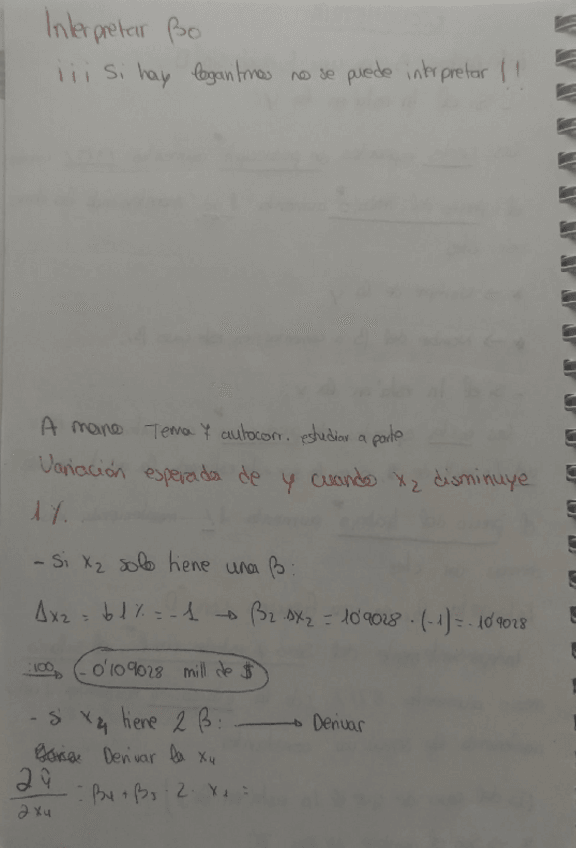 Interpretar β0
¡¡¡ Si hay logaritmos no se puede interpretar !!
A mano Tema 7 autocorr. estudiar a parte
Variación esperada de y cuando x2 disminuye
1%.
- Si x2 solo tiene una β:
Δx2 = ↓1% = -1 → β2·Δx2 = 10'9028·(-1) = -10'9028
:100 → -0'109028 mill de $
- Si x4 tiene 2 β: → Derivar
Derivar la x4
∂ŷ/∂x4 = β4 + β3 · 2 · x4 =